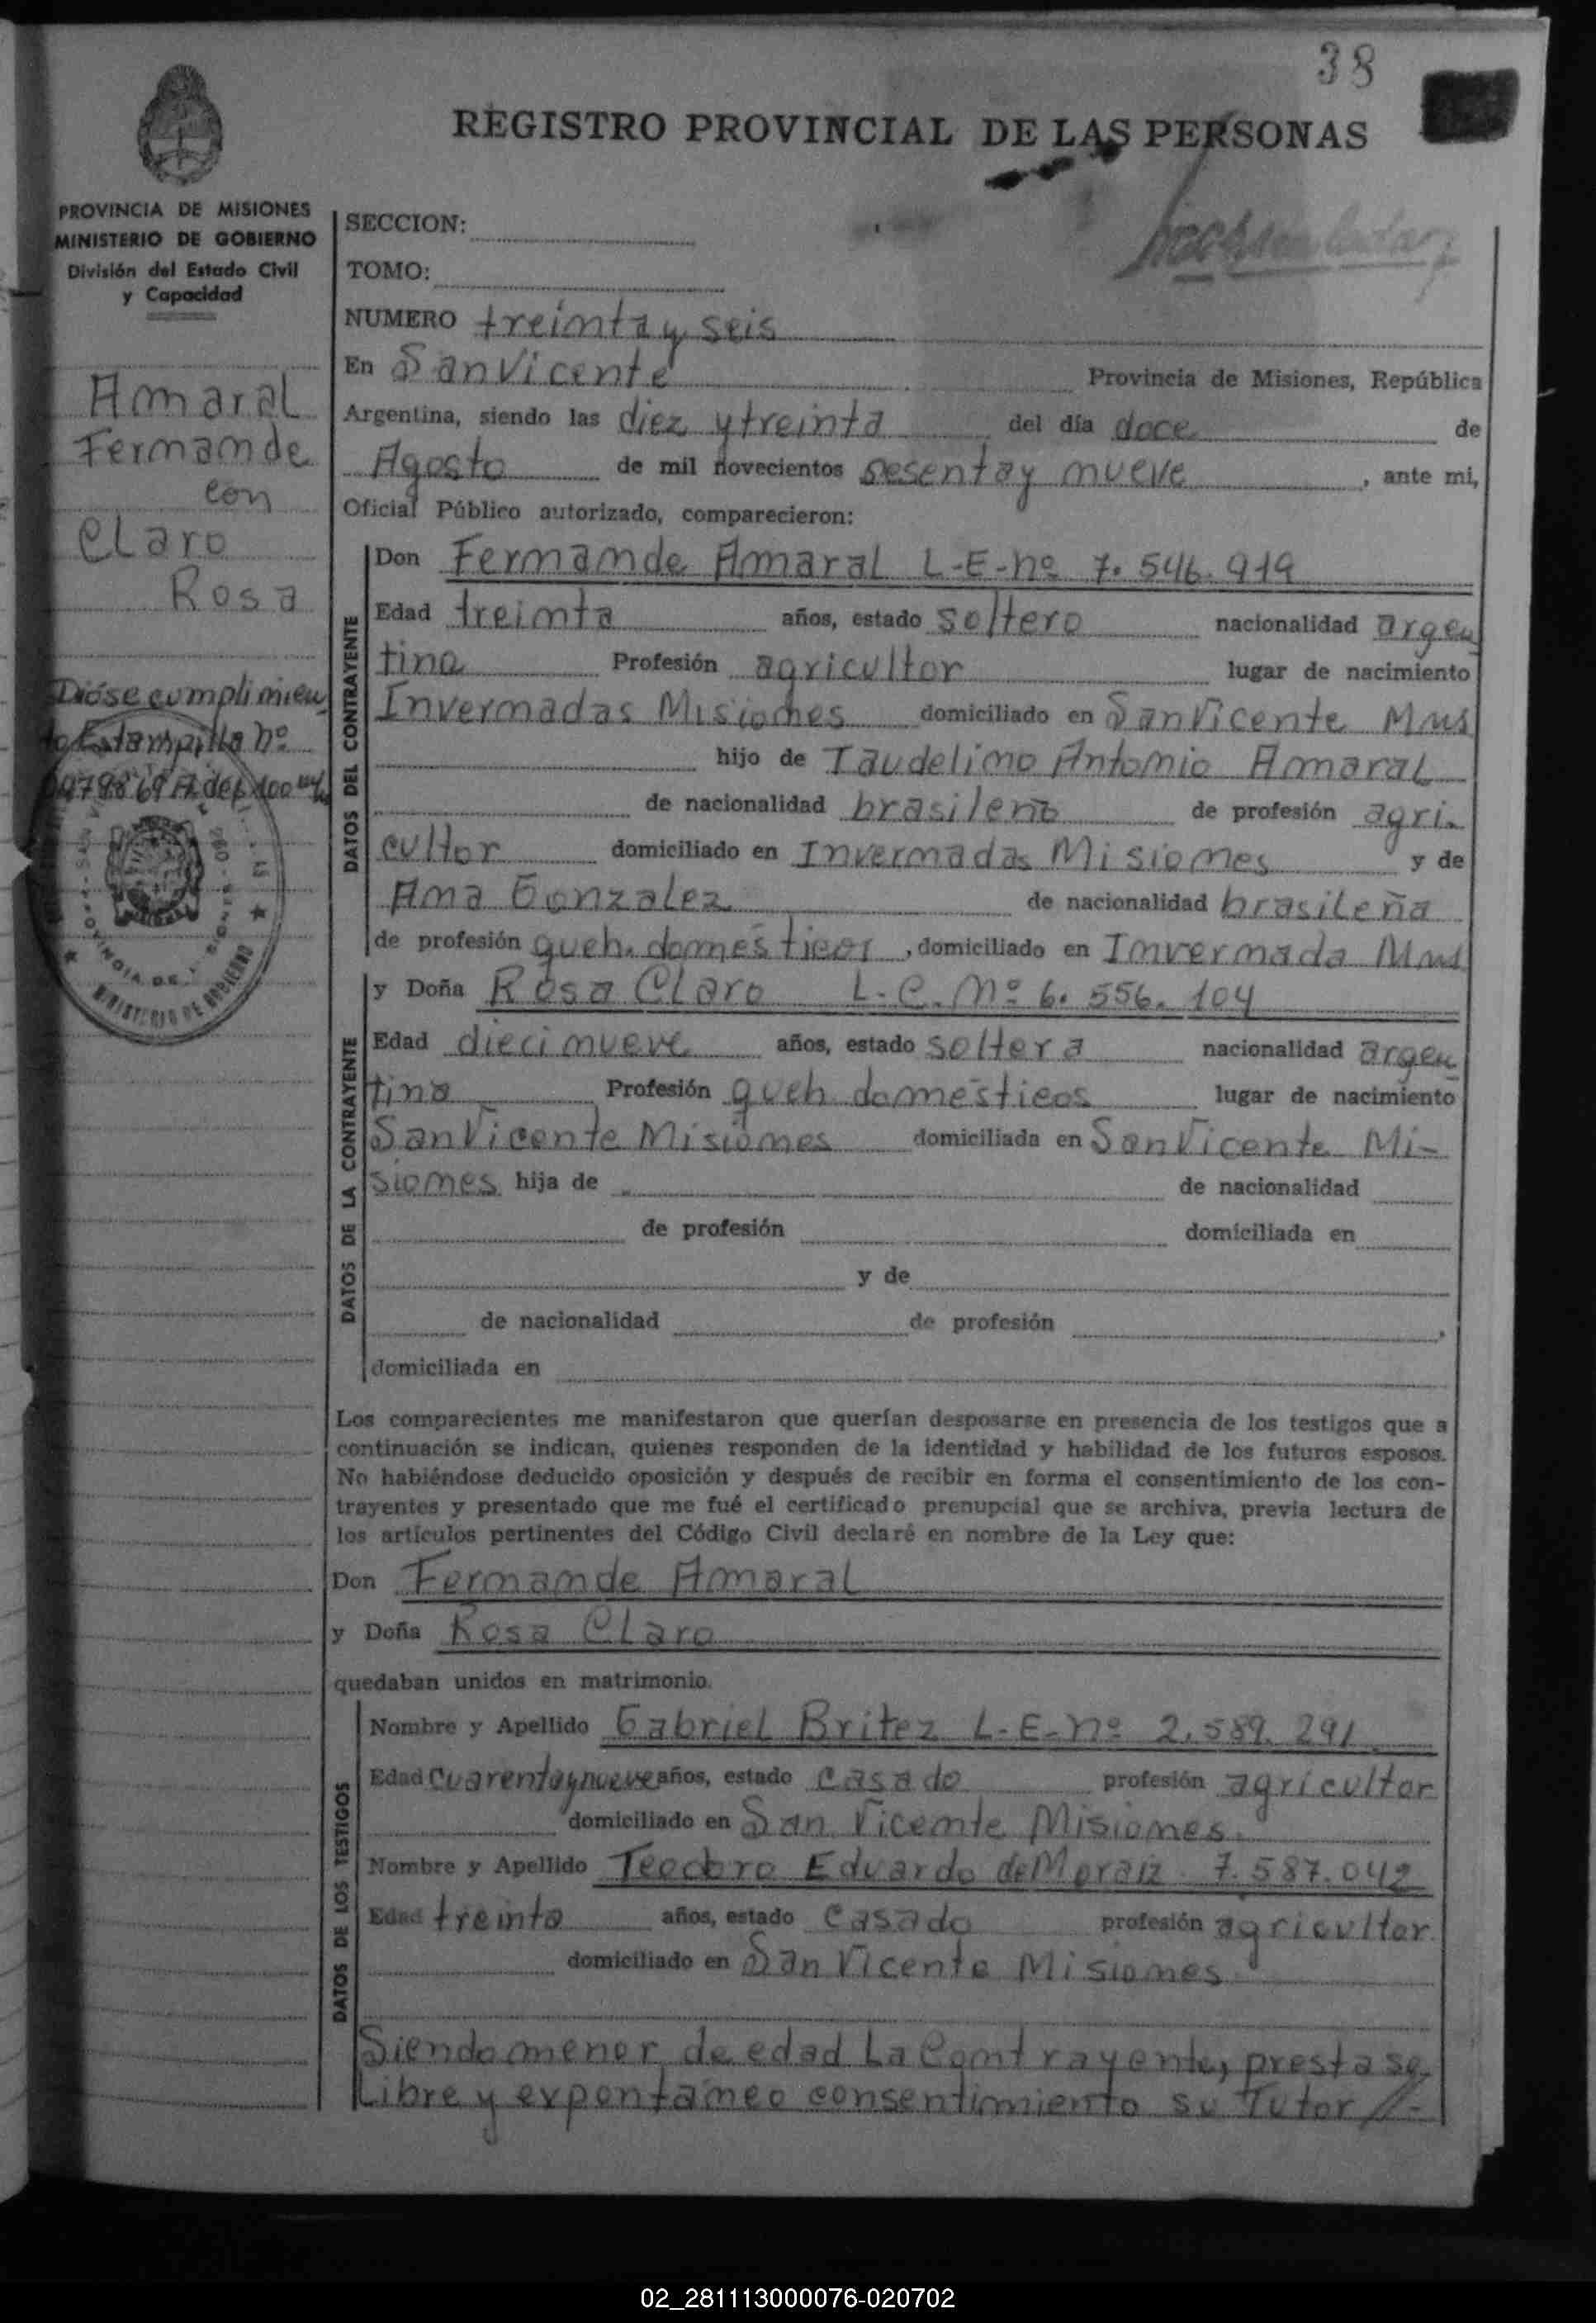 38
REGISTRO PROVINCIAL DE LAS PERSONAS
PROVINCIA DE MISIONES
MINISTERIO DE GOBIERNO
División del Estado Civil
y Capacidad
SECCION:
TOMO:
NUMERO treinta y seis
En San Vicente Provincia de Misiones, República
Argentina, siendo las diez y treinta del día doce de
Agosto de mil novecientos sesenta y nueve, ante mi,
Oficial Público autorizado, comparecieron:
Amaral
Fernande
con
Claro
Rosa
Dióse cumplimien
to Estampilla nº
MINISTERIO DE GOBIERNO
DATOS DEL CONTRAYENTE
Don Fernande Amaral L-E-nº 7.546.919
Edad treinta años, estado soltero nacionalidad argen
tina Profesión agricultor lugar de nacimiento
Invernadas Misiones domiciliado en San Vicente Mnes
hijo de Taudelino Antonio Amaral
de nacionalidad brasileño de profesión agri-
cultor domiciliado en Invernadas Misiones y de
Ana Gonzalez de nacionalidad brasileña
de profesión queh. domésticos, domiciliado en Invernada Mnes
DATOS DE LA CONTRAYENTE
y Doña Rosa Claro L.C. Nº 6.556.104
Edad diecinueve años, estado soltera nacionalidad argen
tina Profesión queh domésticos lugar de nacimiento
San Vicente Misiones domiciliada en San Vicente Mi-
siones hija de de nacionalidad
de profesión domiciliada en
y de
de nacionalidad de profesión ,
domiciliada en
Los comparecientes me manifestaron que querían desposarse en presencia de los testigos que a
continuación se indican, quienes responden de la identidad y habilidad de los futuros esposos.
No habiéndose deducido oposición y después de recibir en forma el consentimiento de los con-
trayentes y presentado que me fué el certificado prenupcial que se archiva, previa lectura de
los artículos pertinentes del Código Civil declaré en nombre de la Ley que:
Don Fernande Amaral
y Doña Rosa Claro
quedaban unidos en matrimonio.
DATOS DE LOS TESTIGOS
Nombre y Apellido Gabriel Britez L-E-nº 2.589.291
Edad cuarenta y nueve años, estado casado profesión agricultor
domiciliado en San Vicente Misiones.
Nombre y Apellido Teodoro Eduardo de Moraiz 7.587.042
Edad treinta años, estado casado profesión agricultor
domiciliado en San Vicente Misiones
Siendo menor de edad La Contrayente, presta se
Libre y expontáneo consentimiento su Tutor //-
02_281113000076-020702